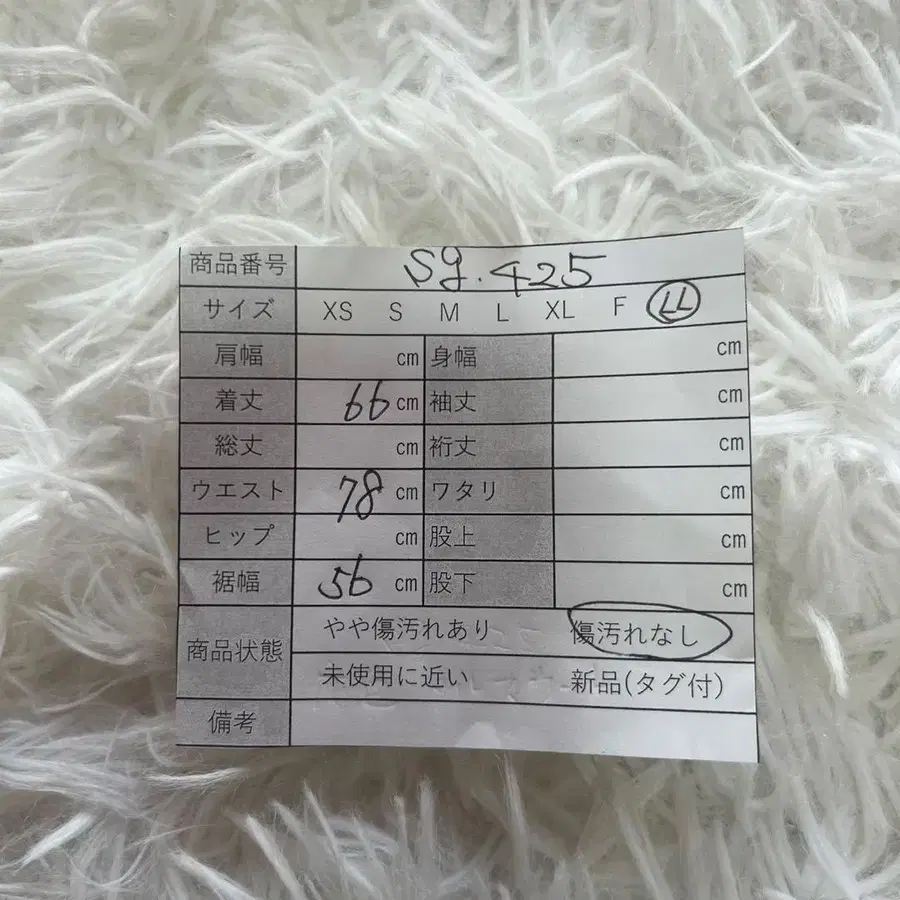 商品番号 Sg.425
サイズ XS S M L XL F LL
肩幅 cm 身幅 cm
着丈 66 cm 袖丈 cm
総丈 cm 裄丈 cm
ウエスト 78 cm ワタリ cm
ヒップ cm 股上 cm
裾幅 56 cm 股下 cm
商品状態 やや傷汚れあり 傷汚れなし
未使用に近い 新品(タグ付)
備考